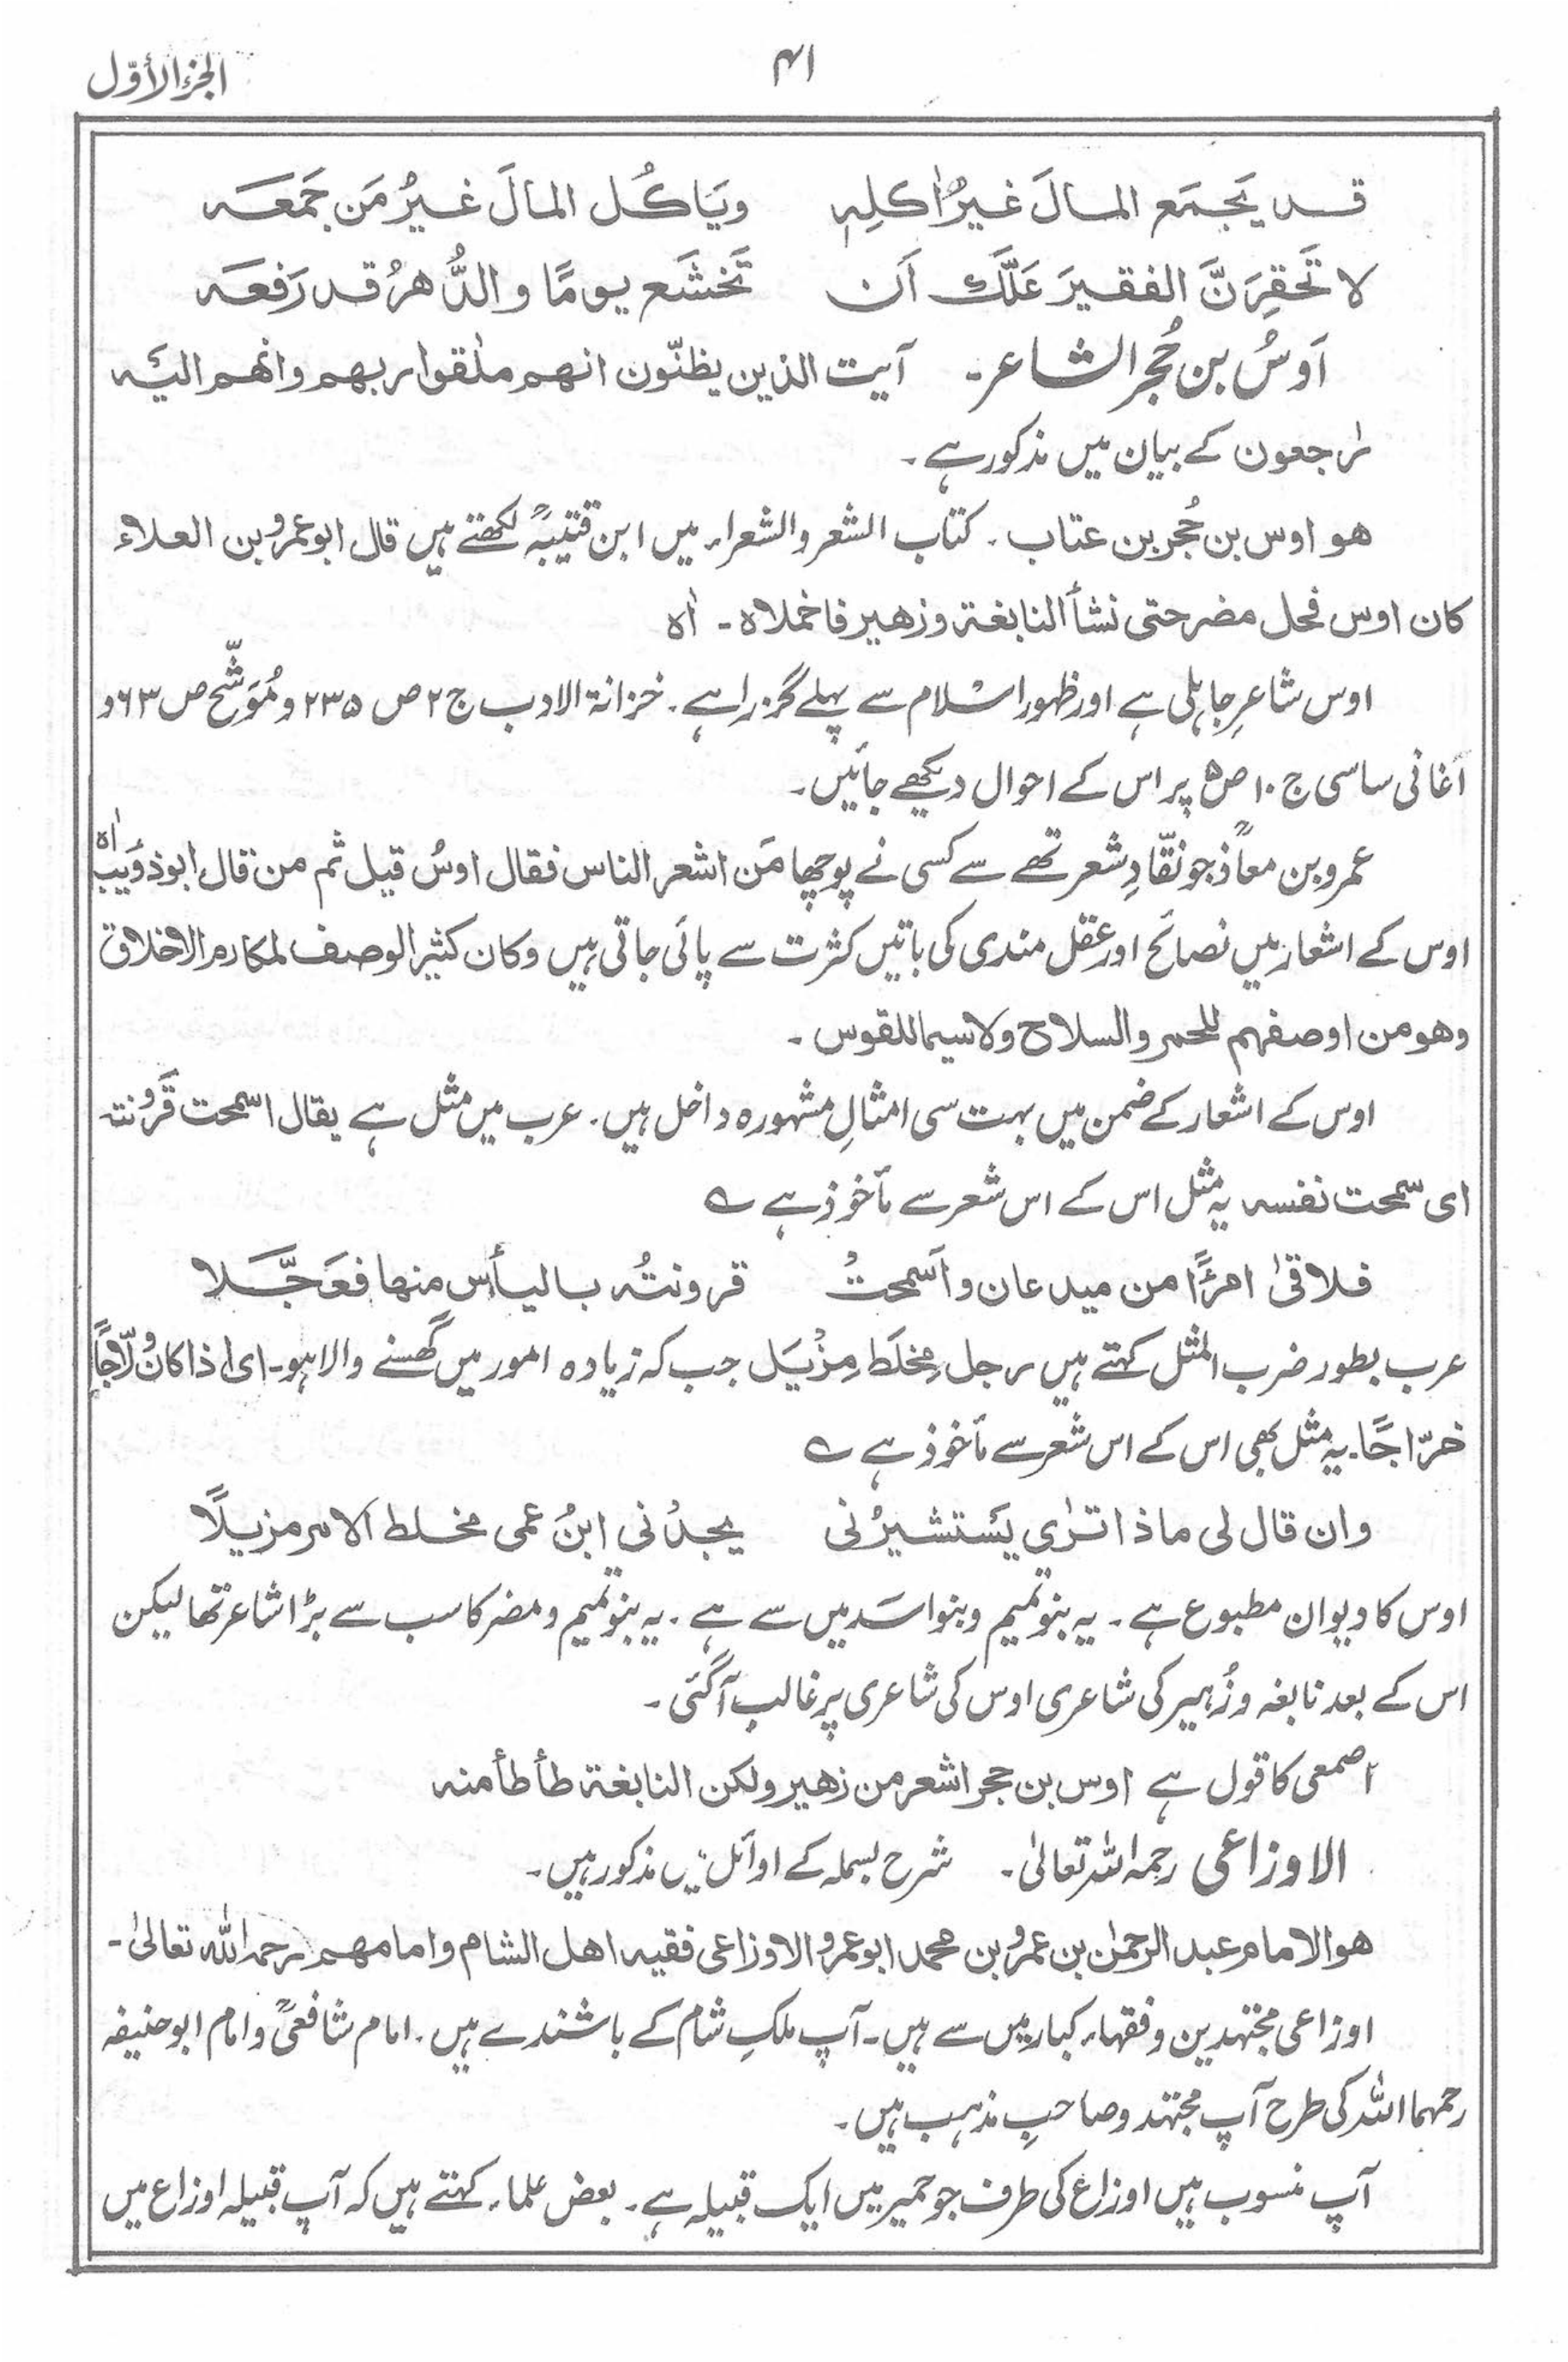 الجزء الأوّل
۴۱
قد يَجمَع المالَ غيرُ اٰكلِہٖ ويَاكُل المالَ غيرُ مَن جَمَعَہ
لا تَحقِرَنَّ الفقيرَ عَلَّكَ اَن تَخشَع يومًا والدَّهرُ قد رَفعَہ
اَوسُ بن حُجر الشاعر۔ آیت الذين يظنّون انهم ملٰقوا ربهم وانهم اليَہ
رٰجعون کے بیان میں مذکور ہے۔
هو اوس بن حُجر بن عتاب ۔ کتاب الشعر والشعراء میں ابن قتیبہؒ لکھتے ہیں قال ابو عمرو بن العلاء
كان اوس فحل مضر حتى نشأ النابغة وزهير فاخملاه ۔ اٰہ
اوس شاعرِ جاہلی ہے اور ظہور اسلام سے پہلے گزرا ہے ۔ خزانۃ الادب ج ۲ ص ۲۳۵ و مُوَشَّح ص ۶۳ و
اغانی ساسی ج ۱۰ ص ۵ پر اس کے احوال دیکھے جائیں۔
عمرو بن معاذؒ جو نقّادِ شعر تھے سے کسی نے پوچھا مَن اشعر الناس فقال اوسُ قيل ثم من قال ابو ذؤيب اٰہ
اوس کے اشعار میں نصائح اور عقل مندی کی باتیں کثرت سے پائی جاتی ہیں وكان كثير الوصف لمكارم الاخلاق
وهو من اوصفهم للحمر والسلاح ولا سيما للقوس ۔
اوس کے اشعار کے ضمن میں بہت سی امثالِ مشہورہ داخل ہیں ۔ عرب میں مثل ہے يقال اسمحت قَرُونتہ
اى سمحت نفسہ یہ مثل اس کے اس شعر سے مأخوذ ہے ؎
فلاقىٰ امرًأ من ميدعان واَسمحتْ قرونتُہ باليأس منها فعَجَّلا
عرب بطور ضرب المثل کہتے ہیں رجل مِخلَط مِزْيَل جب کہ زیادہ امور میں گھسنے والا ہو۔ اى اذا كان وَلّاجًا
خرّاجًا۔ یہ مثل بھی اس کے اس شعر سے مأخوذ ہے ؎
وان قال لى ماذا ترٰى يَستشيرُنى يجدْنى ابنُ عمى مخلط الامر مزيلًا
اوس کا دیوان مطبوع ہے ۔ یہ بنو تمیم و بنو اسَد میں سے ہے ۔ یہ بنو تمیم و مضر کا سب سے بڑا شاعر تھا لیکن
اس کے بعد نابغہ و زُہیر کی شاعری اوس کی شاعری پر غالب آگئی ۔
اصمعی کا قول ہے اوس بن حجر اشعر من زهير ولكن النابغة طأطأ منہ
الاوزاعى رحمہ اللہ تعالیٰ۔ شرح بسملہ کے اوائل میں مذکور ہیں۔
هو الامام عبد الرحمٰن بن عمرو بن محمد ابو عمرو الاوزاعى فقيہ اهل الشام وامامهم رحمہ اللہ تعالىٰ۔
اوزاعی مجتہدین و فقہاء کبار میں سے ہیں۔ آپ ملکِ شام کے باشندے ہیں ۔ امام شافعیؒ و امام ابو حنیفہ
رحمہما اللہ کی طرح آپ مجتہد و صاحبِ مذہب ہیں۔
آپ منسوب ہیں اوزاع کی طرف جو حمیر میں ایک قبیلہ ہے ۔ بعض علماء کہتے ہیں کہ آپ قبیلہ اوزاع میں